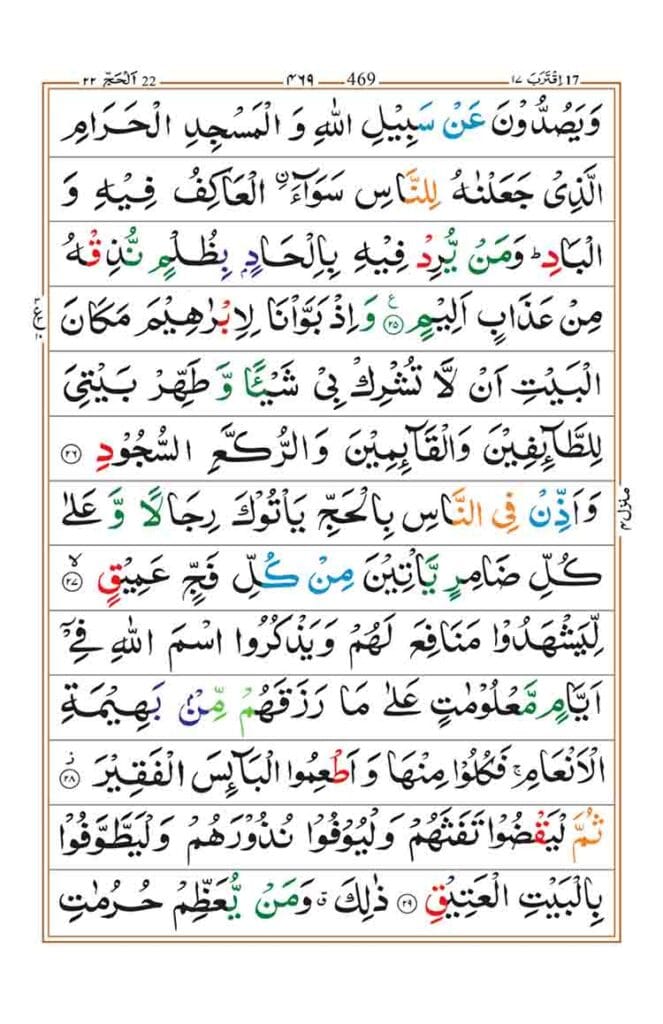 22 اَلْحَجّ ٢٢ 469 ٤٦٩ 17 اِقْتَرَبَ ١٧
وَيَصُدُّوْنَ عَنْ سَبِيْلِ اللّٰهِ وَ الْمَسْجِدِ الْحَرَامِ
الَّذِىْ جَعَلْنٰهُ لِلنَّاسِ سَوَآءَ ۨ الْعَاكِفُ فِيْهِ وَ
الْبَادِ ؕ وَمَنْ يُّرِدْ فِيْهِ بِاِلْحَادٍۭ بِظُلْمٍ نُّذِقْهُ
مِنْ عَذَابٍ اَلِيْمٍ ۝٢٥ ع وَاِذْ بَوَّاْنَا لِاِبْرٰهِيْمَ مَكَانَ
الْبَيْتِ اَنْ لَّا تُشْرِكْ بِىْ شَيْـًٔا وَّ طَهِّرْ بَيْتِىَ
لِلطَّآئِفِيْنَ وَالْقَآئِمِيْنَ وَالرُّكَّعِ السُّجُوْدِ ۝٢٦
وَاَذِّنْ فِى النَّاسِ بِالْحَجِّ يَاْتُوْكَ رِجَالًا وَّ عَلٰى
كُلِّ ضَامِرٍ يَّاْتِيْنَ مِنْ كُلِّ فَجٍّ عَمِيْقٍ ۝٢٧ ۙ
لِّيَشْهَدُوْا مَنَافِعَ لَهُمْ وَيَذْكُرُوا اسْمَ اللّٰهِ فِىْۤ
اَيَّامٍ مَّعْلُوْمٰتٍ عَلٰى مَا رَزَقَهُمْ مِّنْۢ بَهِيْمَةِ
الْاَنْعَامِ ۚ فَكُلُوْا مِنْهَا وَ اَطْعِمُوا الْبَآئِسَ الْفَقِيْرَ ۝٢٨ ز
ثُمَّ لْيَقْضُوْا تَفَثَهُمْ وَلْيُوْفُوْا نُذُوْرَهُمْ وَلْيَطَّوَّفُوْا
بِالْبَيْتِ الْعَتِيْقِ ۝٢٩ ذٰلِكَ ۗ وَمَنْ يُّعَظِّمْ حُرُمٰتِ
منزل ٤